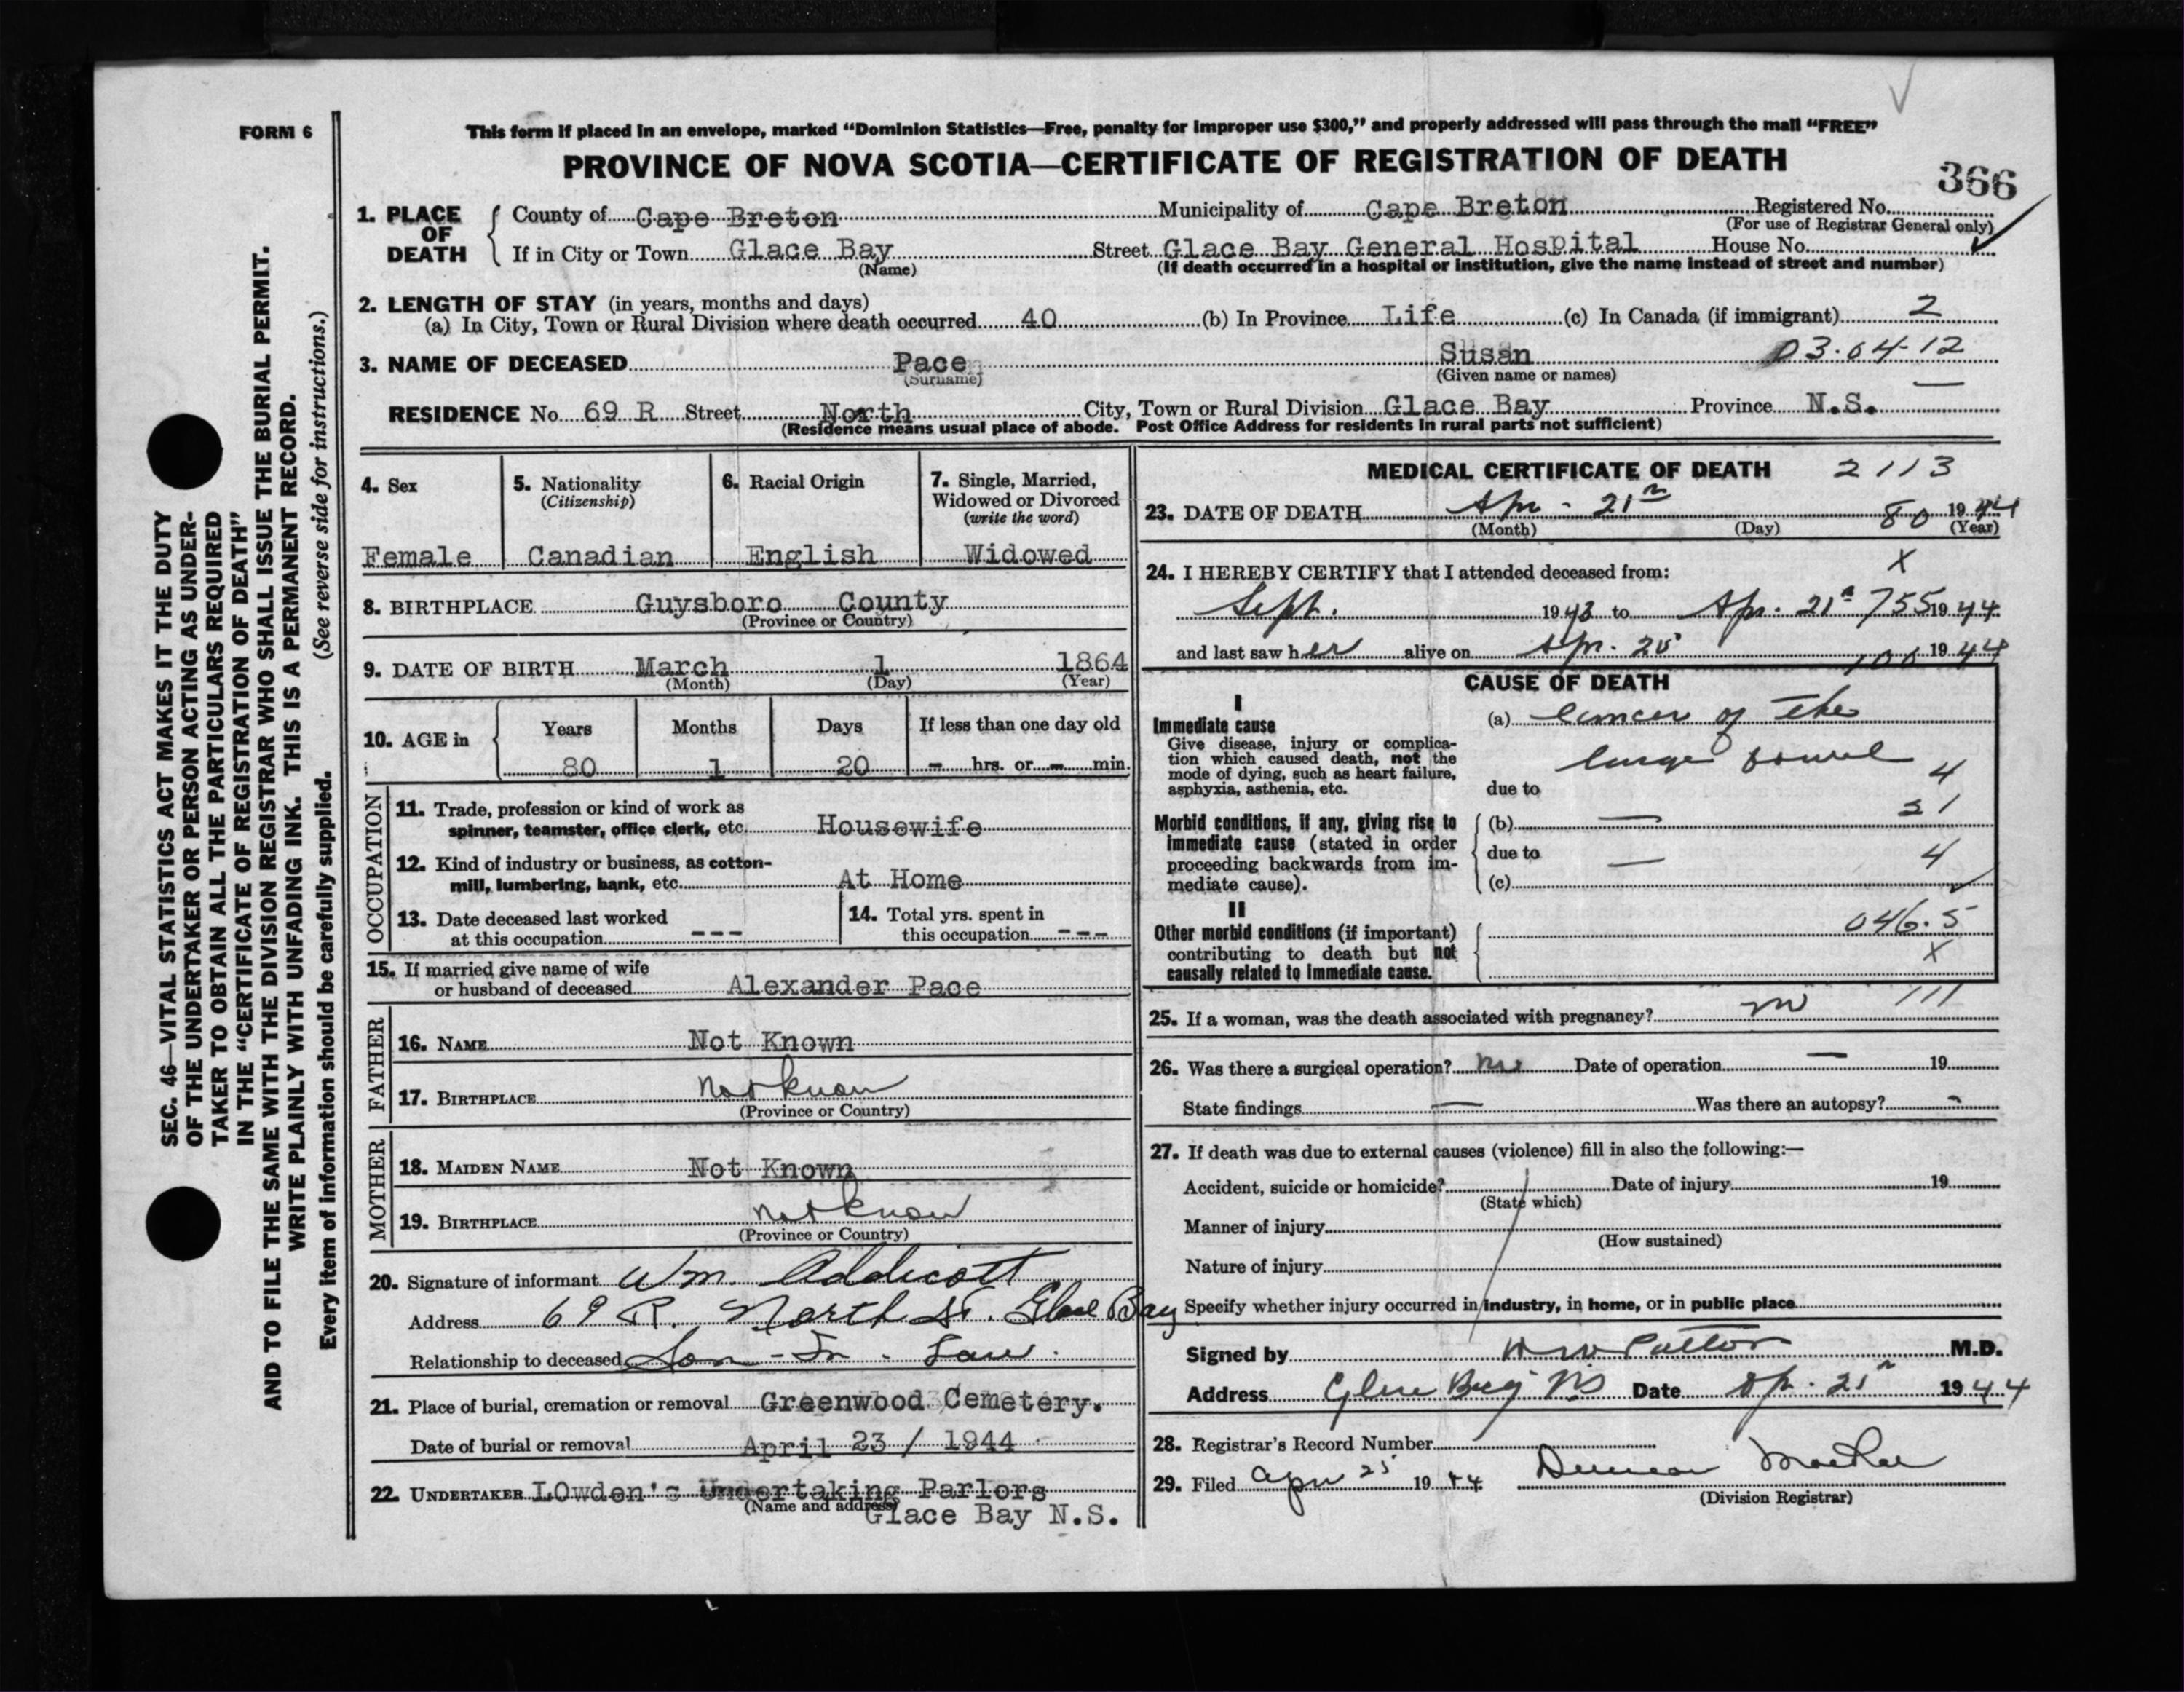 FORM 6
This form if placed in an envelope, marked “Dominion Statistics—Free, penalty for improper use $300,” and properly addressed will pass through the mail “FREE”
PROVINCE OF NOVA SCOTIA—CERTIFICATE OF REGISTRATION OF DEATH
366
1. PLACE OF DEATH
County of Cape Breton Municipality of Cape Breton Registered No.
(For use of Registrar General only)
If in City or Town Glace Bay Street Glace Bay General Hospital House No.
(Name) (If death occurred in a hospital or institution, give the name instead of street and number)
2. LENGTH OF STAY (in years, months and days)
(a) In City, Town or Rural Division where death occurred 40 (b) In Province Life (c) In Canada (if immigrant) 2
3. NAME OF DECEASED Pace Susan 03.04-12
(Surname) (Given name or names)
RESIDENCE No 69 R Street North City, Town or Rural Division Glace Bay Province N.S.
(Residence means usual place of abode. Post Office Address for residents in rural parts not sufficient)
SEC. 46—VITAL STATISTICS ACT MAKES IT THE DUTY
OF THE UNDERTAKER OR PERSON ACTING AS UNDER-
TAKER TO OBTAIN ALL THE PARTICULARS REQUIRED
IN THE “CERTIFICATE OF REGISTRATION OF DEATH”
AND TO FILE THE SAME WITH THE DIVISION REGISTRAR WHO SHALL ISSUE THE BURIAL PERMIT.
WRITE PLAINLY WITH UNFADING INK. THIS IS A PERMANENT RECORD.
Every item of information should be carefully supplied. (See reverse side for instructions.)
4. Sex
Female
5. Nationality
(Citizenship)
Canadian
6. Racial Origin
English
7. Single, Married,
Widowed or Divorced
(write the word)
Widowed
8. BIRTHPLACE Guysboro County
(Province or Country)
9. DATE OF BIRTH March 1 1864
(Month) (Day) (Year)
10. AGE in
Years Months Days If less than one day old
80 1 20 - hrs. or - min.
OCCUPATION
11. Trade, profession or kind of work as
spinner, teamster, office clerk, etc. Housewife
12. Kind of industry or business, as cotton-
mill, lumbering, bank, etc. At Home
13. Date deceased last worked
at this occupation ---
14. Total yrs. spent in
this occupation ---
15. If married give name of wife
or husband of deceased Alexander Pace
FATHER
16. NAME Not Known
17. BIRTHPLACE not know
(Province or Country)
MOTHER
18. MAIDEN NAME Not Known
19. BIRTHPLACE not know
(Province or Country)
20. Signature of informant Wm. Addicott
Address 69 R. North St. Glace Bay
Relationship to deceased Son-In-Law.
21. Place of burial, cremation or removal Greenwood Cemetery.
Date of burial or removal April 23 / 1944
22. UNDERTAKER LOwden's Undertaking Parlors
(Name and address)
Glace Bay N.S.
MEDICAL CERTIFICATE OF DEATH 2113
23. DATE OF DEATH Apr - 21 80 1944
(Month) (Day) (Year)
24. I HEREBY CERTIFY that I attended deceased from: X
Sept. 1943 to Apr. 21 755 1944
and last saw her alive on Apr. 20 1944
CAUSE OF DEATH
I
Immediate cause
Give disease, injury or complica-
tion which caused death, not the
mode of dying, such as heart failure,
asphyxia, asthenia, etc.
(a) Cancer of the
large bowel
due to 4
Morbid conditions, if any, giving rise to
immediate cause (stated in order
proceeding backwards from im-
mediate cause).
(b) — 21
due to — 4
(c)
II
Other morbid conditions (if important)
contributing to death but not
causally related to immediate cause.
046.5
X
25. If a woman, was the death associated with pregnancy? no 111
26. Was there a surgical operation? no Date of operation — 19
State findings — Was there an autopsy? -
27. If death was due to external causes (violence) fill in also the following:—
Accident, suicide or homicide? Date of injury 19
(State which)
Manner of injury
(How sustained)
Nature of injury
Specify whether injury occurred in industry, in home, or in public place
Signed by M.D.
Address Glace Bay NS Date Ap. 21 1944
28. Registrar's Record Number
29. Filed Apr 25 1944 Duncan
(Division Registrar)